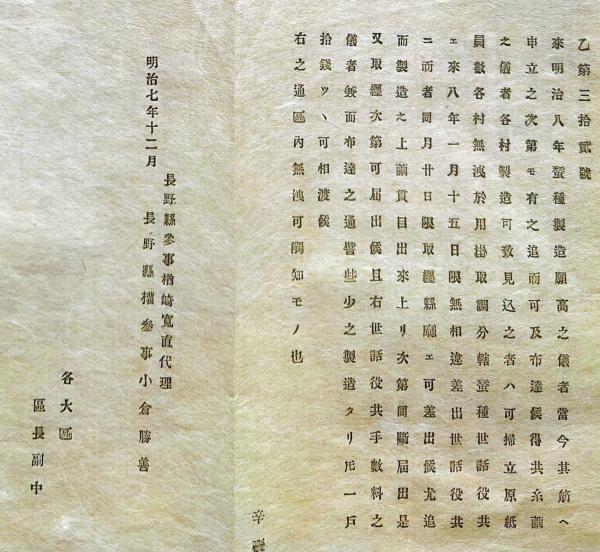 乙第三拾貳號
來明治八年蚕種製造願高之儀者當今其筋ヘ
申立之次第モ有之追而可及布達候得共糸繭
之儀者各村製造可致見込之者ハ可掃立原紙
員數各村無洩於用掛取調分轄蚕種世話役共
ェ來八年一月十五日限無相違差出世話役共
ニ而者同月廿日限取纒縣廳ェ可差出候尤追
而製造之上繭貫目出來上リ次第同斷届出是
又取纒次第可届出候且右世話役共手數料之
儀者兼而布達之通譬些少之製造タリ𪜈一戸
拾錢ツヽ可相渡候
右之通區內無洩可觸知モノ也
明治七年十二月
長野縣參事楢﨑寬直代理
長野縣權參事小倉勝善
各大區
區長副中